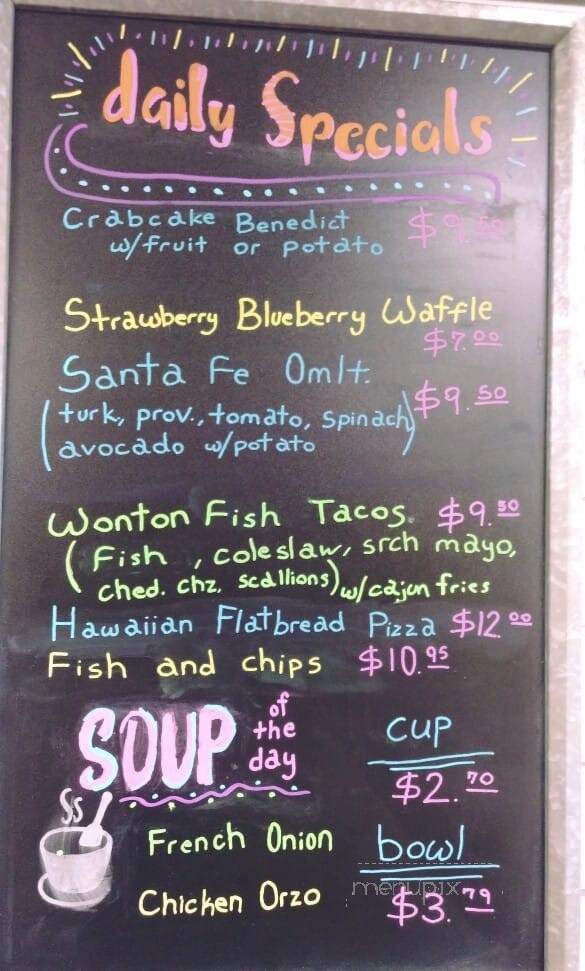 daily Specials
Crabcake Benedict
w/fruit or potato
Strawberry Blueberry Waffle
$7.00
Santa Fe Omlt.
(turk, prov., tomato, spinach $9.50
avocado w/potato)
Wonton Fish Tacos. $9.50
(Fish, coleslaw, srch mayo,
ched. chz, scallions) w/cajun fries
Hawaiian Flatbread Pizza $12.00
Fish and chips $10.95
SOUP of the day
cup
$2.70
French Onion
bowl
Chicken Orzo
$3.79
menupix